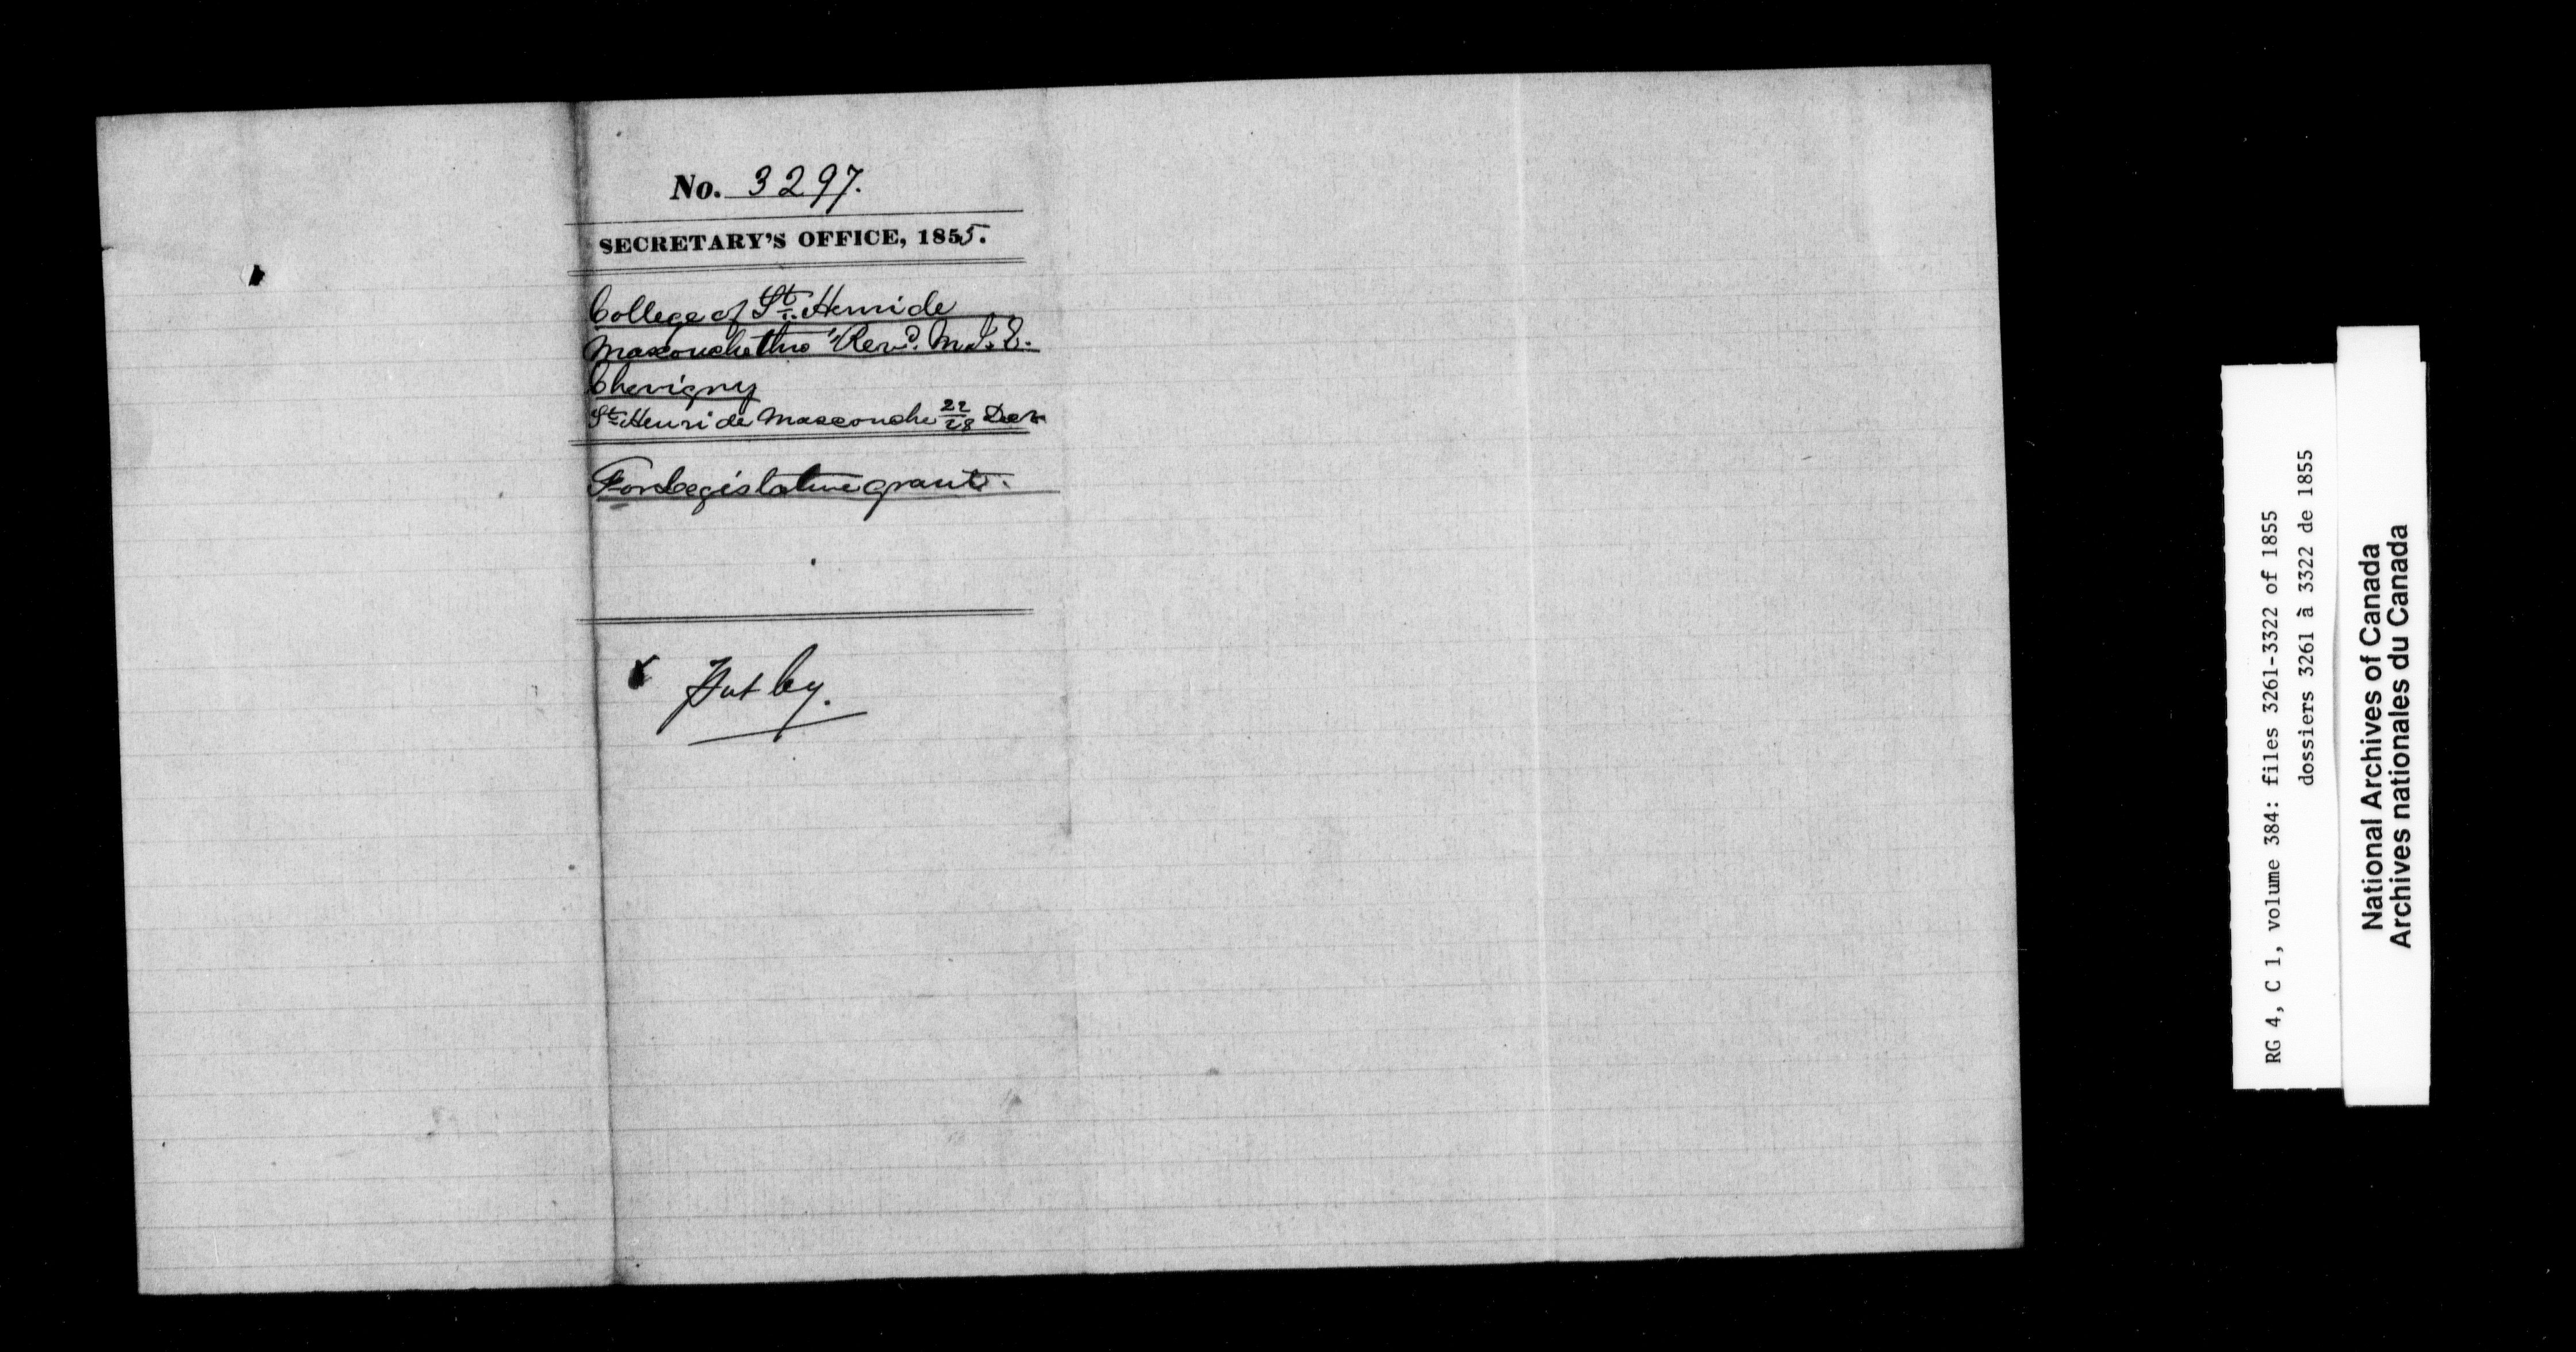 No. 3297.
SECRETARY'S OFFICE, 1855.
College of St. Henri de
Mascouche thro' Revd. M. J. E.
Chevigny
St. Henri de Mascouche 22/28 Decr
For Legislative grant.
Put by.
RG 4, C 1, volume 384: files 3261-3322 of 1855
dossiers 3261 à 3322 de 1855
National Archives of Canada
Archives nationales du Canada